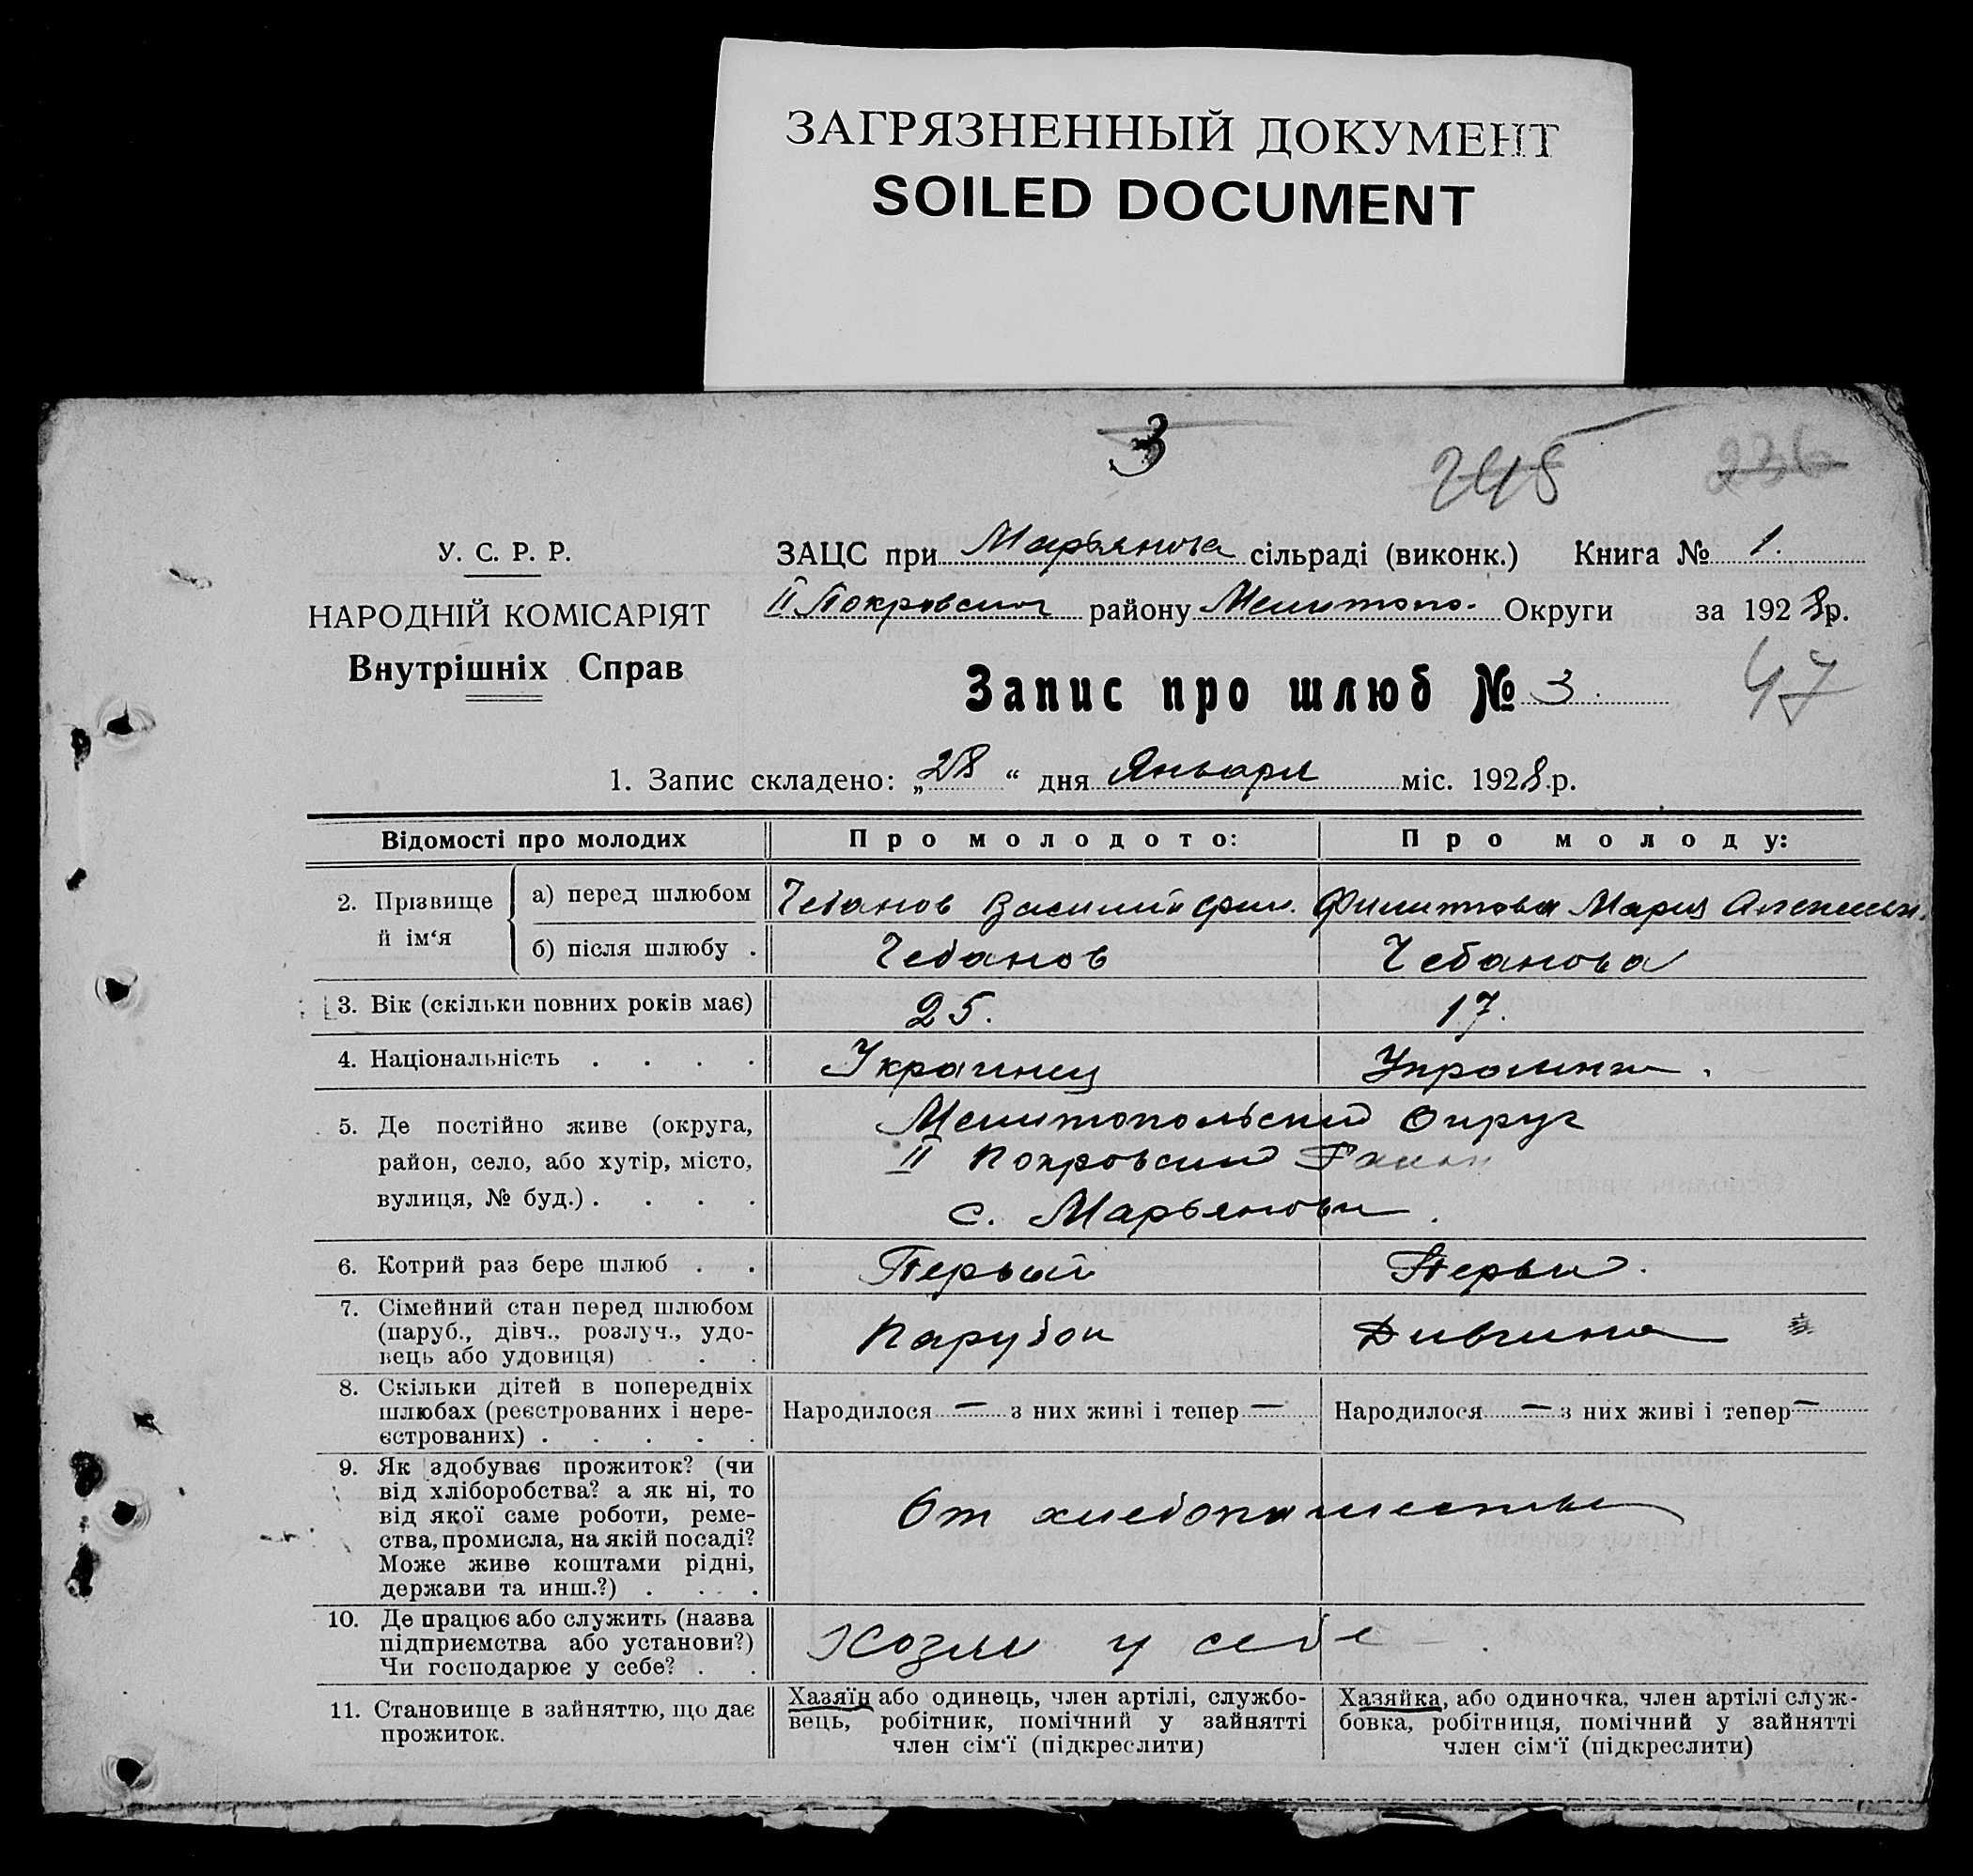 ЗАГРЯЗНЕННЫЙ ДОКУМЕНТ
SOILED DOCUMENT
3
245 236
У. С. Р. Р.
НАРОДНІЙ КОМІСАРІЯТ
Внутрішніх Справ
ЗАЦС при Марьянова сільраді (виконк.) Книга № 1.
II Покровског району Мелитопо. Округи за 1928 р.
Запис про шлюб № 3.
47
1. Запис складено: „28“ дня Января міс. 1928 р.
Відомості про молодих
Про молодого:
Про молоду:
2. Прізвище й ім‘я
а) перед шлюбом
Чебанов Василий Фил.
Филиппова Мария Алексеевн.
б) після шлюбу .
Чебанов
Чебанова
3. Вік (скільки повних років має)
25.
17.
4. Національність . . . .
Украинец
Украинка.
5. Де постійно живе (округа,
район, село, або хутір, місто,
вулиця, № буд.) . . . .
Мелитопольский Округ
II Покровский Район
с. Марьяновка.
6. Котрий раз бере шлюб . .
Первый
Первый.
7. Сімейний стан перед шлюбом
(паруб., дівч., розлуч., удо-
вець або удовиця) . .
Парубок
Дивчина
8. Скільки дітей в попередніх
шлюбах (реєстрованих і нере-
єстрованих) . . . . .
Народилося — з них живі і тепер —
Народилося — з них живі і тепер —
9. Як здобуває прожиток? (чи
від хліборобства? а як ні, то
від якої саме роботи, реме-
ства, промисла, на якій посаді?
Може живе коштами рідні,
держави та инш.?) . . .
От хлебопашества
10. Де працює або служить (назва
підприємства або установи?)
Чи господарює у себе? . .
у себе
11. Становище в зайняттю, що дає
прожиток.
Хазяїн або одинець, член артілі, службо-
вець, робітник, помічний у зайнятті
член сім‘ї (підкреслити)
Хазяйка, або одиночка, член артілі служ-
бовка, робітниця, помічний у зайнятті
член сім‘ї (підкреслити)